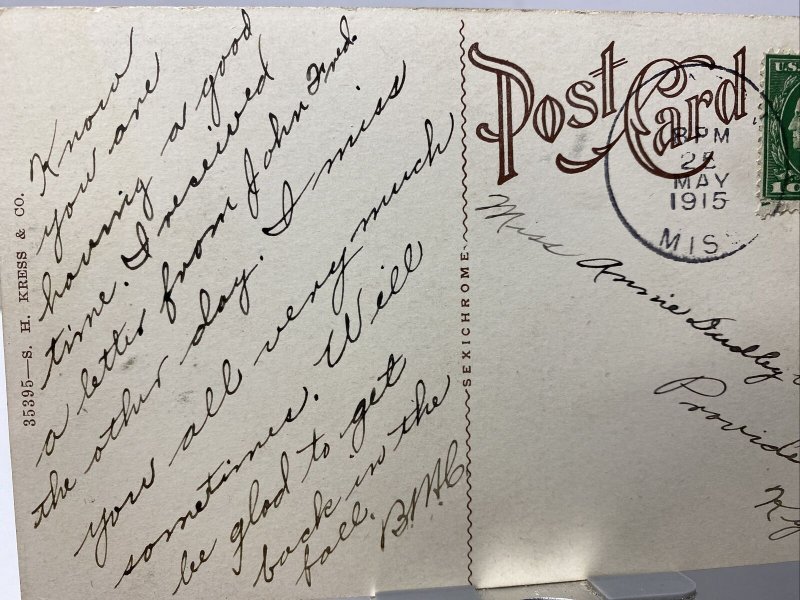 Know
you are
having a good
time. I received
a letter from John Fred
the other day. I miss
you all very much
sometimes. Will
be glad to get
back in the
fall.
35395—S. H. KRESS & CO.
SEXICHROME
Post Card
PM
MAY
1915
MIS
U.S.
Miss Annie Dudley
Provide
Ky